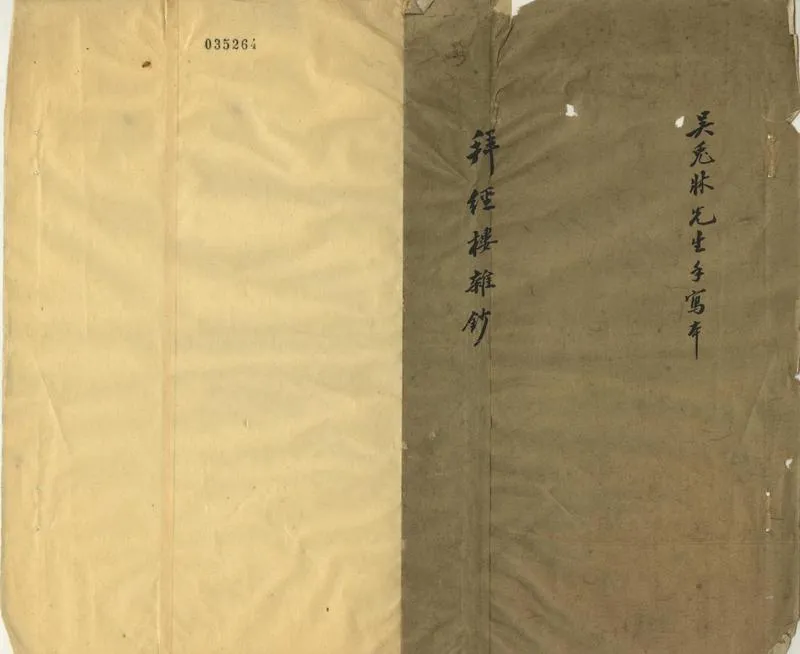 吳兎牀先生手寫本
拜經樓雜鈔
035264